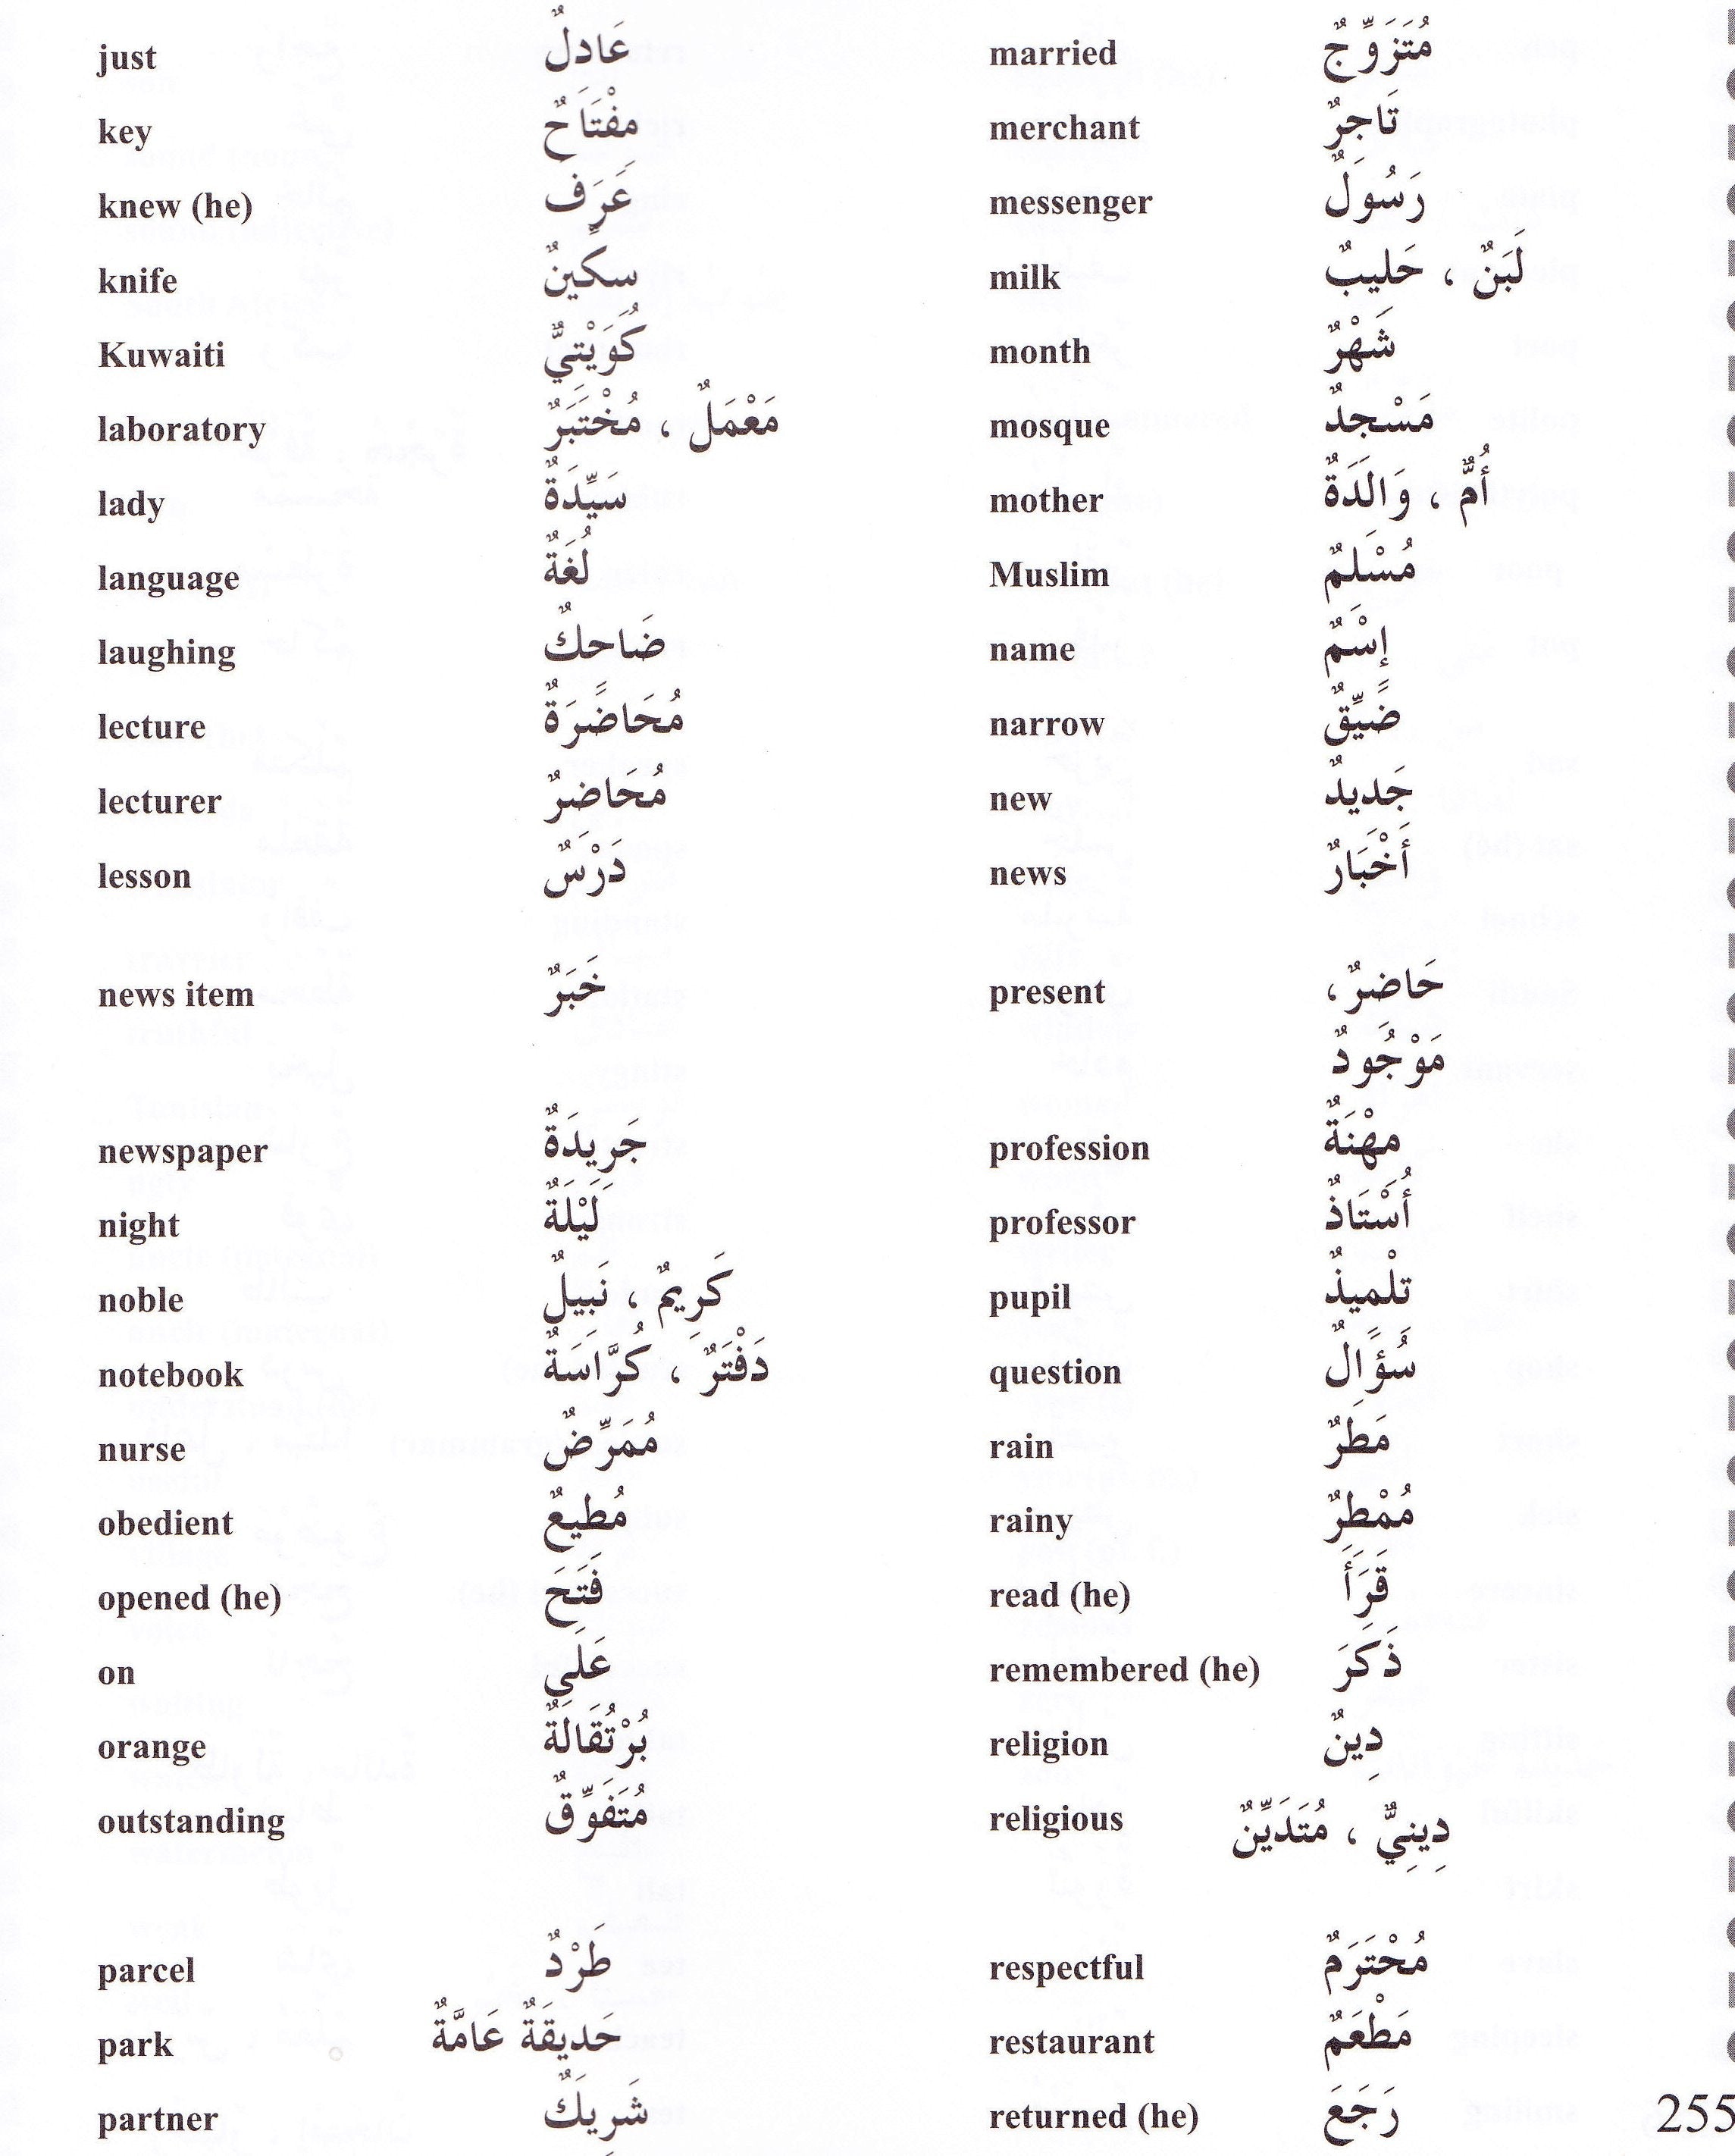 just عَادِلٌ
key مِفْتَاحٌ
knew (he) عَرَفَ
knife سِكِّينٌ
Kuwaiti كُوَيْتِيٌّ
laboratory مَعْمَلٌ ، مُخْتَبَرٌ
lady سَيِّدَةٌ
language لُغَةٌ
laughing ضَاحِكٌ
lecture مُحَاضَرَةٌ
lecturer مُحَاضِرٌ
lesson دَرْسٌ
married مُتَزَوِّجٌ
merchant تَاجِرٌ
messenger رَسُولٌ
milk لَبَنٌ ، حَلِيبٌ
month شَهْرٌ
mosque مَسْجِدٌ
mother أُمٌّ ، وَالِدَةٌ
Muslim مُسْلِمٌ
name إِسْمٌ
narrow ضَيِّقٌ
new جَدِيدٌ
news أَخْبَارٌ
news item خَبَرٌ
newspaper جَرِيدَةٌ
night لَيْلَةٌ
noble كَرِيمٌ ، نَبِيلٌ
notebook دَفْتَرٌ ، كُرَّاسَةٌ
nurse مُمَرِّضٌ
obedient مُطِيعٌ
opened (he) فَتَحَ
on عَلَى
orange بُرْتُقَالَةٌ
outstanding مُتَفَوِّقٌ
present حَاضِرٌ ،
مَوْجُودٌ
profession مِهْنَةٌ
professor أُسْتَاذٌ
pupil تِلْمِيذٌ
question سُؤَالٌ
rain مَطَرٌ
rainy مُمْطِرٌ
read (he) قَرَأَ
remembered (he) ذَكَرَ
religion دِينٌ
religious دِينِيٌّ ، مُتَدَيِّنٌ
parcel طَرْدٌ
park حَدِيقَةٌ عَامَّةٌ
partner شَرِيكٌ
respectful مُحْتَرَمٌ
restaurant مَطْعَمٌ
returned (he) رَجَعَ
255